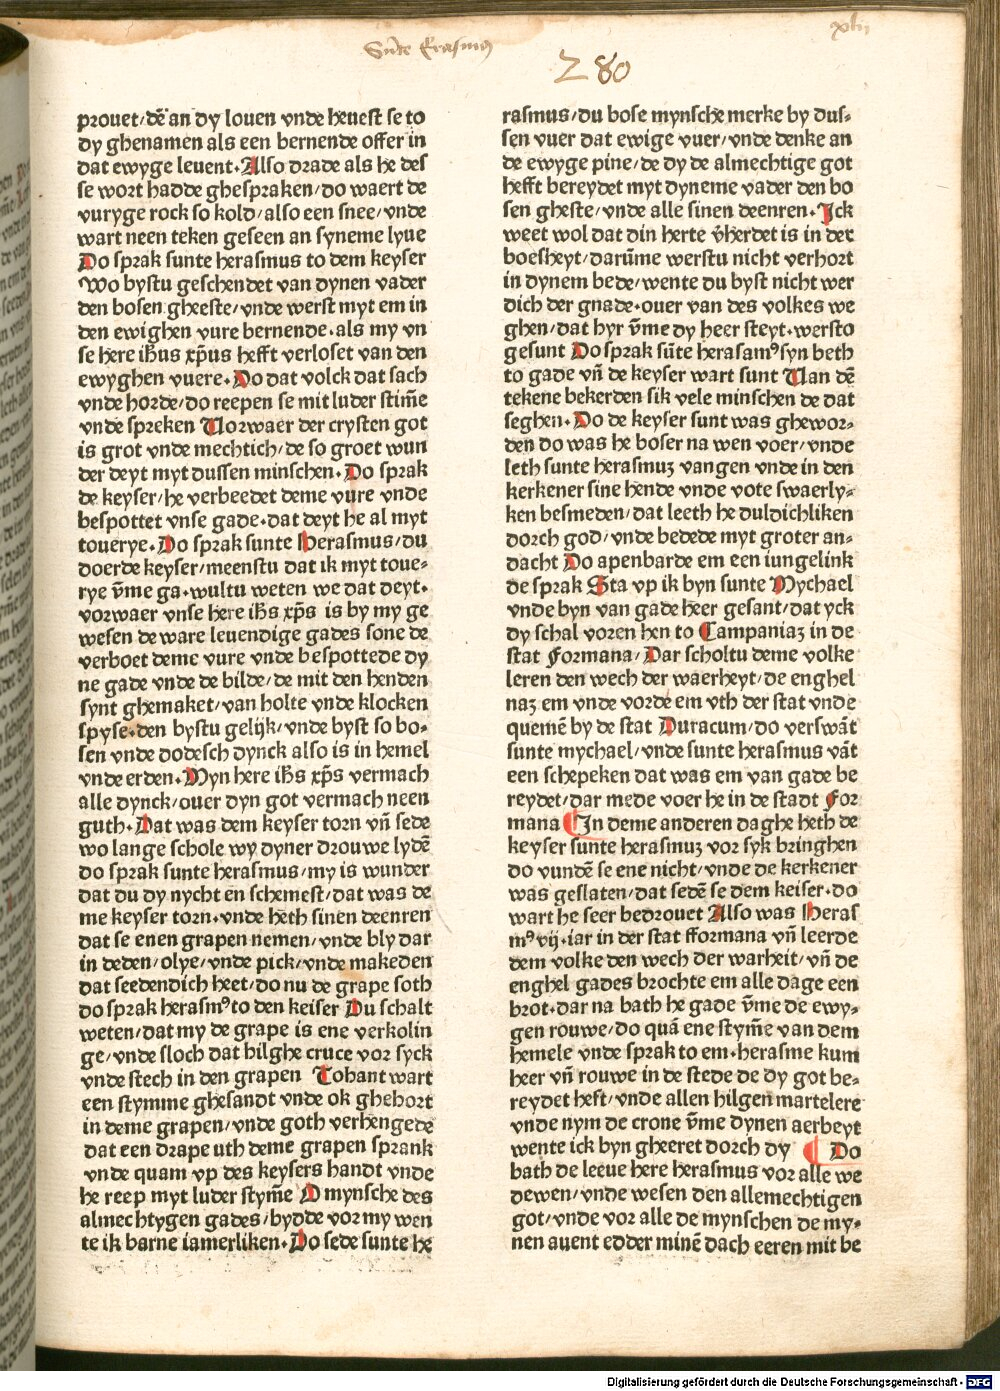 Sūte Erasmus
xlij
280
prouet/dē an dy louen vnde heuest se to
dy ghenamen als een bernende offer in
dat ewyge leuent. Also drade als he des
se wort hadde ghespraken/do waert de
vuryge rock so kold/also een snee/vnde
wart neen teken geseen an syneme lyue
Do sprak sunte herasmus to dem keyser
Wo bystu geschendet van dynen vader
den bosen gheeste/vnde werst myt em in
den ewighen vure bernende.als my vn
se here ihūs xp̄us hefft verloset van den
ewyghen vuere. Do dat volck dat sach
vnde horde/do reepen se mit luder stim̄e
vnde spreken Vorwaer der crysten got
is grot vnde mechtich/de so groet wun
der deyt myt dussen minschen. Do sprak
de keyser/he verbeedet deme vure vnde
bespottet vnse gade.dat deyt he al myt
touerye. Do sprak sunte Herasmus/du
doerde keyser/meenstu dat ik myt toue-
rye v̄me ga.wultu weten we dat deyt.
vorwaer vnse here ih̄s xp̄s is by my ge
wesen de ware leuendige gades sone de
verboet deme vure vnde bespottede dy
ne gade vnde de bilde/de mit den henden
synt ghemaket/van holte vnde klocken
spyse.den bystu gelijk/vnde byst so bo-
sen vnde dodesch dynck also is in hemel
vnde erden. Myn here ih̄s xp̄s vermach
alle dynck/ouer dyn got vermach neen
guth. Dat was dem keyser torn vn̄ sede
wo lange schole wy dyner drouwe lydē
do sprak sunte herasmus/my is wunder
dat du dy nycht en schemest/dat was de
me keyser torn.vnde heth sinen deenren
dat se enen grapen nemen/vnde bly dar
in deden/olye/vnde pick/vnde makeden
dat seedendich heet/do nu de grape soth
do sprak herasmꝰ to den keiser Du schalt
weten/dat my de grape is ene verkolin
ge/vnde sloch dat hilghe cruce vor syck
vnde stech in den grapen Tohant wart
een stymme ghesandt vnde ok ghehort
in deme grapen/vnde goth verhengede
dat een drape uth deme grapen sprank
vnde quam vp des keysers handt vnde
he reep myt luder stym̄e O mynsche des
almechtygen gades/bydde vor my wen
te ik barne iamerliken. Do sede sunte he
rasmus/du bose mynsche merke by dus-
sen vuer dat ewige vuer/vnde denke an
de ewyge pine/de dy de almechtige got
hefft bereydet myt dyneme vader den bo
sen gheste/vnde alle sinen deenren. Ick
weet wol dat din herte v̄herdet is in der
boesheyt/darūme werstu nicht verhort
in dynem bede/wente du byst nicht wer
dich der gnade.ouer van des volkes we
ghen/dat hyr v̄me dy heer steyt.wersto
gesunt Do sprak sūte herasamꝰ syn beth
to gade vn̄ de keyser wart sunt Van dē
tekene bekerden sik vele minschen de dat
seghen. Do de keyser sunt was ghewor-
den do was he boser na wen voer/vnde
leth sunte herasmuz vangen vnde in den
kerkener sine hende vnde vote swaerly-
ken besmeden/dat leeth he duldichliken
dorch god/vnde bedede myt groter an-
dacht Do apenbarde em een iungelink
de sprak Sta vp ik byn sunte Mychael
vnde byn van gade heer gesant/dat yck
dy schal voren hen to Campaniaz in de
stat Formana/Dar scholtu deme volke
leren den wech der waerheyt/de enghel
naz em vnde vorde em vth der stat vnde
quemē by de stat Duracum/do verswāt
sunte mychael/vnde sunte herasmus vāt
een schepeken dat was em van gade be
reydet/dar mede voer he in de stadt For
mana ¶ In deme anderen daghe heth de
keyser sunte herasmuz vor syk bringhen
do vundē se ene nicht/vnde de kerkener
was geslaten/dat sedē se dem keiser.do
wart he seer bedrouet Also was Heras
mꝰ vij.iar in der stat fformana vn̄ leerde
dem volke den wech der warheit/vn̄ de
enghel gades brochte em alle dage een
brot.dar na bath he gade v̄me de ewy-
gen rouwe/do quā ene stym̄e van dem
hemele vnde sprak to em.herasme kum
heer vn̄ rouwe in de stede de dy got be-
reydet heft/vnde allen hilgen martelere
vnde nym de crone v̄me dynen aerbeyt
wente ick byn gheeret dorch dy ¶ Do
bath de leeue here herasmus vor alle we
dewen/vnde wesen den allemechtigen
got/vnde vor alle de mynschen de my-
nen auent edder minē dach eeren mit be
Digitalisierung gefördert durch die Deutsche Forschungsgemeinschaft - DFG